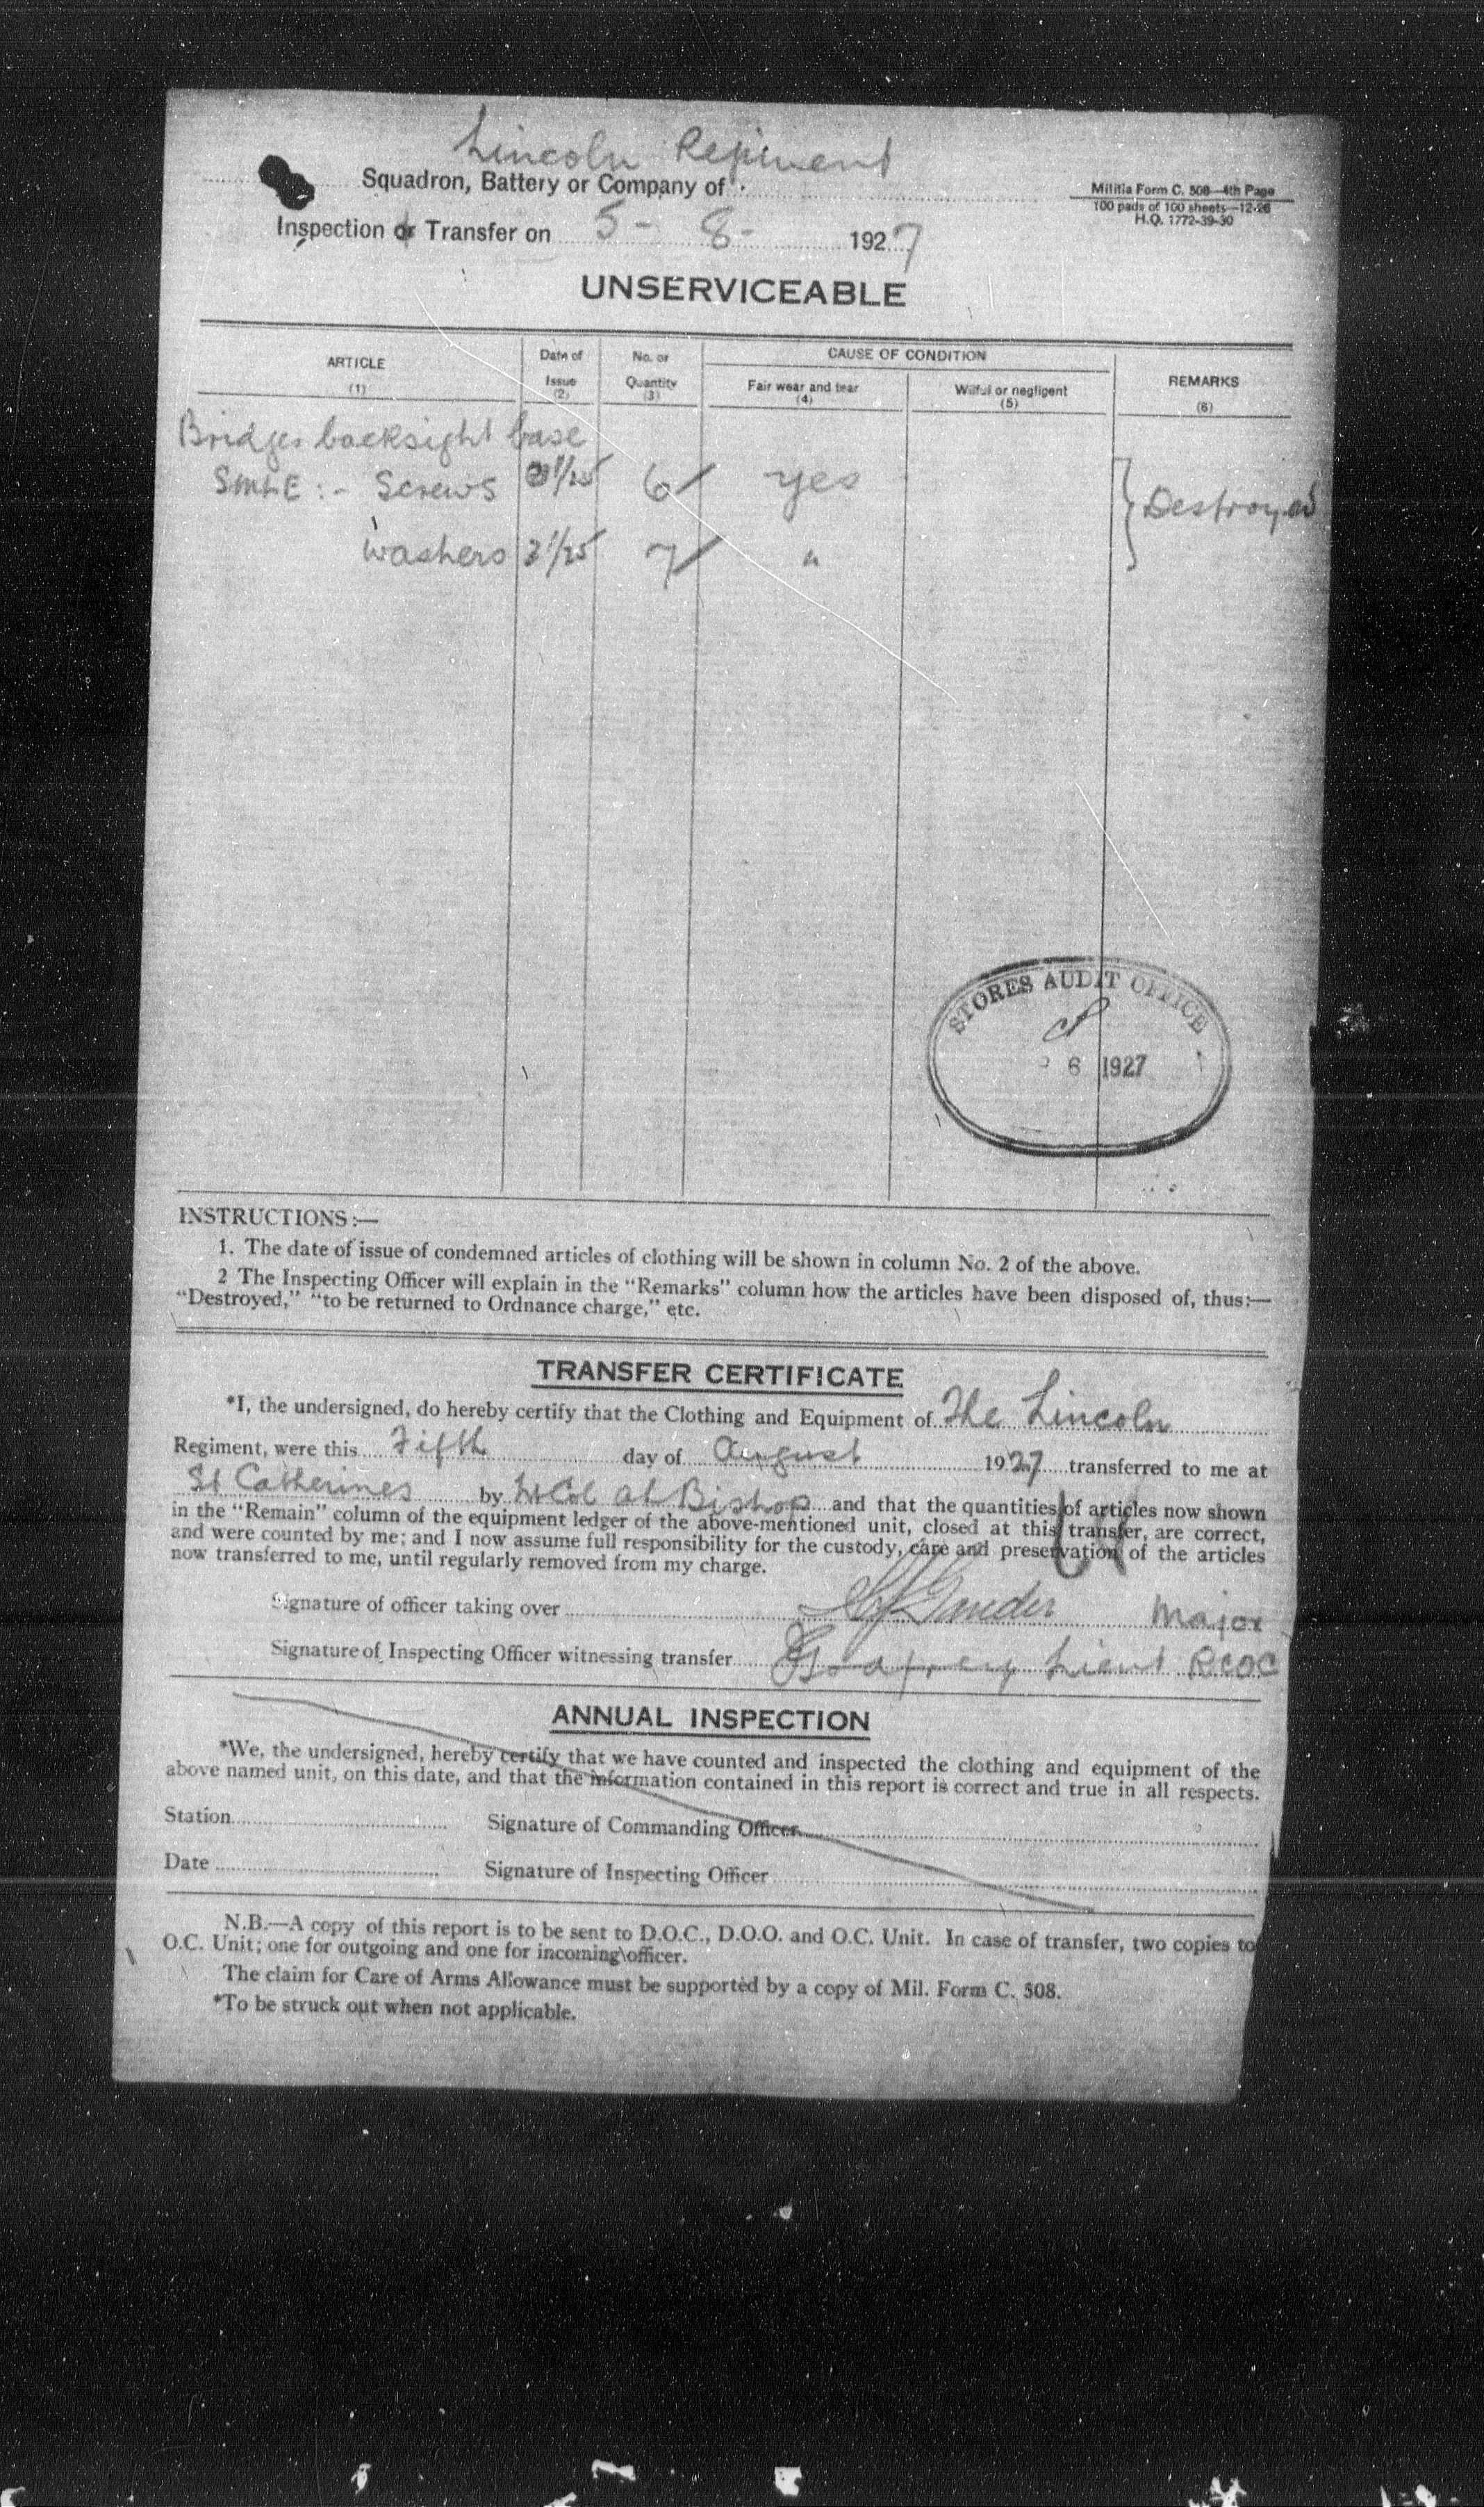 Lincoln Regiment
Squadron, Battery or Company of
Militia Form C. 508—4th Page
100 pads of 100 sheets—12-26
H.Q. 1772-39-30
Inspection or Transfer on 5- 8- 1927
UNSERVICEABLE
ARTICLE
(1)
Date of
Issue
(2)
No. or
Quantity
(3)
CAUSE OF CONDITION
Fair wear and tear
(4)
Wilful or negligent
(5)
REMARKS
(6)
Bridges backsight base
SMLE :- Screws 6 yes
Destroyed
Washers 7 "
STORES AUDIT OFFICE
6 1927
INSTRUCTIONS:—
1. The date of issue of condemned articles of clothing will be shown in column No. 2 of the above.
2 The Inspecting Officer will explain in the "Remarks" column how the articles have been disposed of, thus:—
"Destroyed," "to be returned to Ordnance charge," etc.
TRANSFER CERTIFICATE
*I, the undersigned, do hereby certify that the Clothing and Equipment of The Lincoln
Regiment, were this Fifth day of August 1927 transferred to me at
St Catherines by Lt Col Bishop and that the quantities of articles now shown
in the "Remain" column of the equipment ledger of the above-mentioned unit, closed at this transfer, are correct,
and were counted by me; and I now assume full responsibility for the custody, care and preservation of the articles
now transferred to me, until regularly removed from my charge.
Signature of officer taking over Major
Signature of Inspecting Officer witnessing transfer Godfrey Lieut RCOC
ANNUAL INSPECTION
*We, the undersigned, hereby certify that we have counted and inspected the clothing and equipment of the
above named unit, on this date, and that the information contained in this report is correct and true in all respects.
Station Signature of Commanding Officer
Date Signature of Inspecting Officer
N.B.—A copy of this report is to be sent to D.O.C., D.O.O. and O.C. Unit. In case of transfer, two copies to
O.C. Unit; one for outgoing and one for incoming officer.
The claim for Care of Arms Allowance must be supported by a copy of Mil. Form C. 508.
*To be struck out when not applicable.